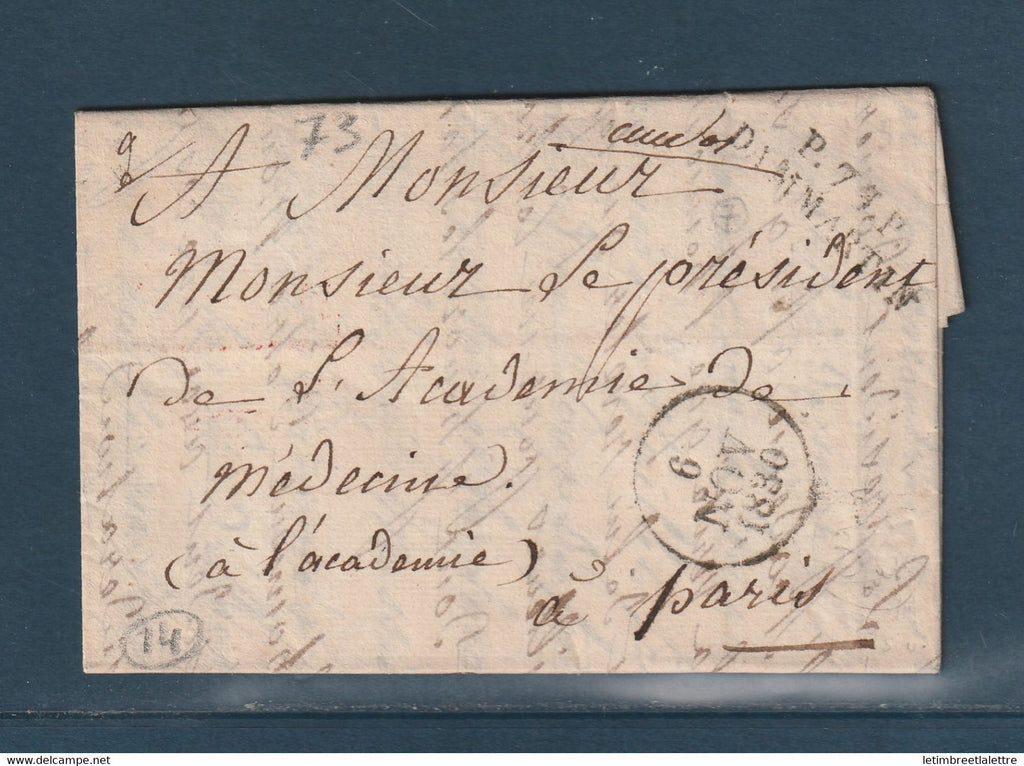 73
P.74.P.
DAMMARTIN
A Monsieur
Monsieur Le président
De L'Academie De
Médecine.
(à l'académie)
à paris
6
NOV
1830
14
www.delcampe.net
letimbreetlalettre